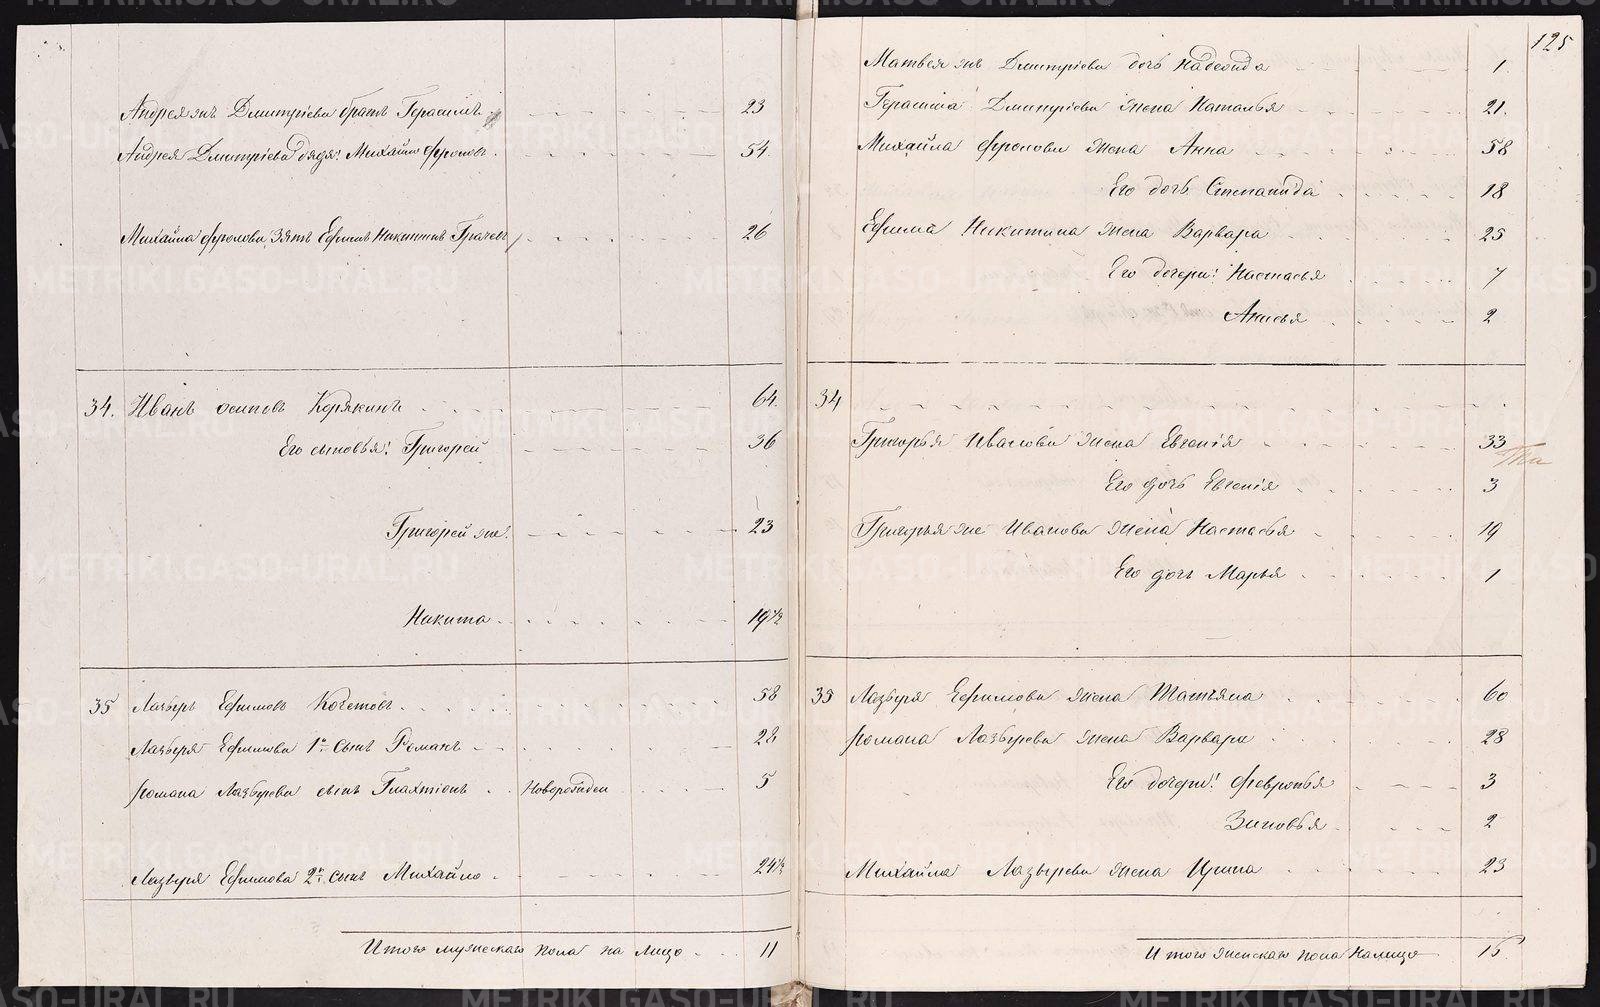 Андрея жъ Дмитріева братъ Герасимъ 23
Андрея Дмитріева дядя: Михайло Фроловъ 54
Михайла Фролова Зять Ефимъ Никитинъ Грачевъ 26
34. Иванъ Осиповъ Корякинъ 64.
Его сыновья: Григорей 36
Григорей же. 23
Никита 19 1/2
35 Лазырь Ефимовъ Кочетовъ 58
Лазыря Ефимова 1й сынъ Романъ 28
Романа Лазырева сынъ Глахтіонъ Новорожден 5
Лазыря Ефимова 2й сынъ Михайло 24 1/2
Итого мужескаго пола на Лицо 11
125
Матвея жъ Дмитріева дочь Надежда 1.
Герасима Дмитріева жена Наталья 21.
Михайла Фролова жена Анна 58
Его дочь Степанида 18
Ефима Никитина жена Варвара 25
Его дочери: Настасья 7
Анисья 2
34
Григорья Иванова жена Евгенія 33
Его дочь Евгенія 3
Григорья же Иванова жена Настасья 19
Его дочь Марья 1
35 Лазыря Ефимова жена Татьяна 60
Романа Лазырева жена Варвара 28
Его дочери: Февронья 3
Зиновья 2
Михайла Лазырева жена Ирина 23
Итого женскаго пола налицо 15
METRIKI.GASO-URAL.RU